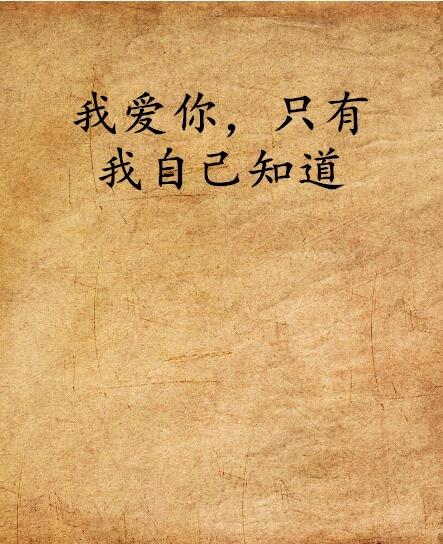 我爱你，只有
我自己知道